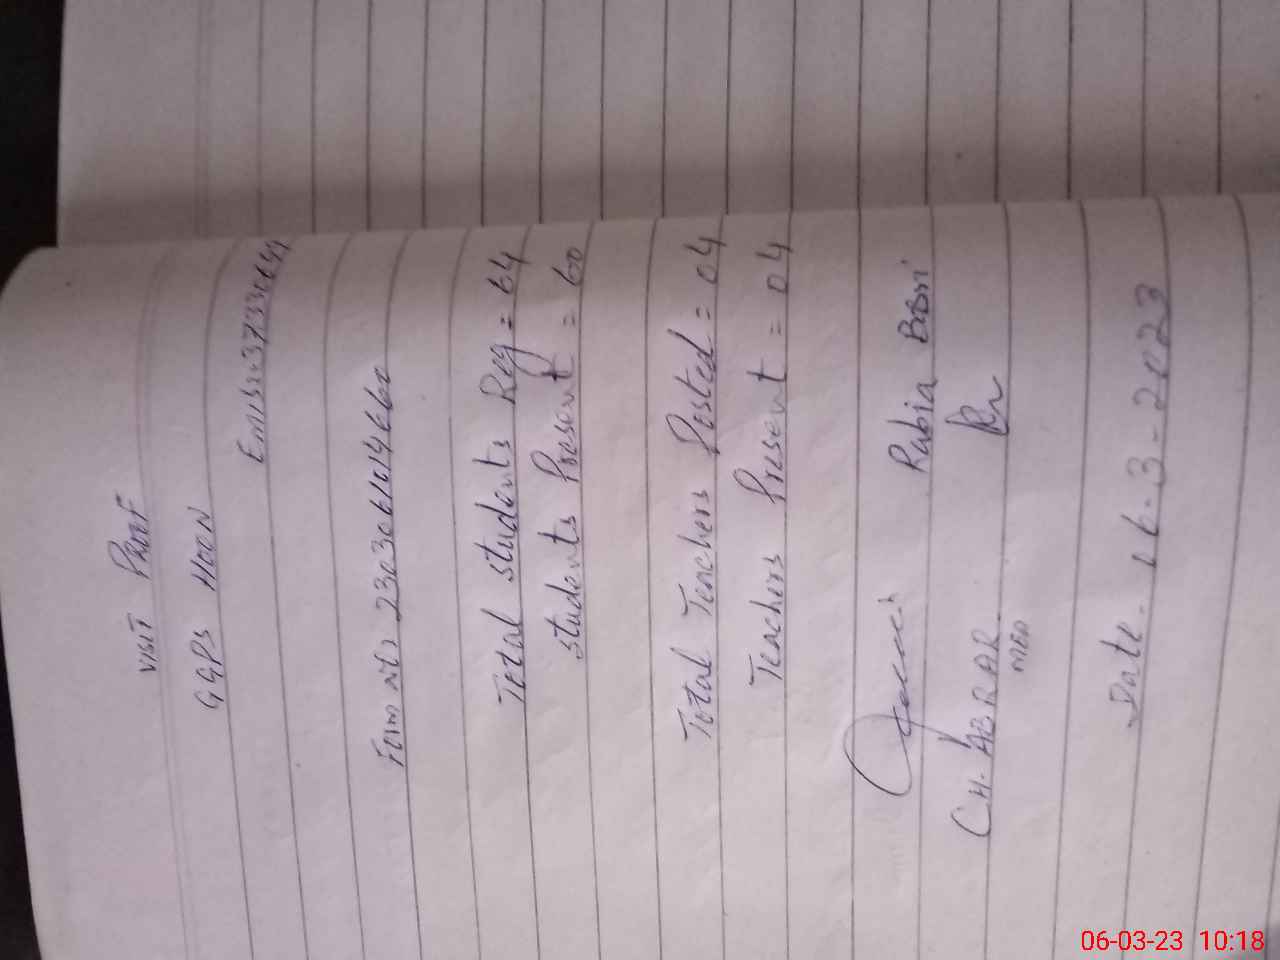 VISIT PROOF
GGPS HOON
Form No
Total students Reg = 64
students Present = 60
Total Teachers Posted = 04
Teachers Present = 04
Rabia Bibi
CH. ABRAR
MEO
Date. 06-3-2023
06-03-23 10:18